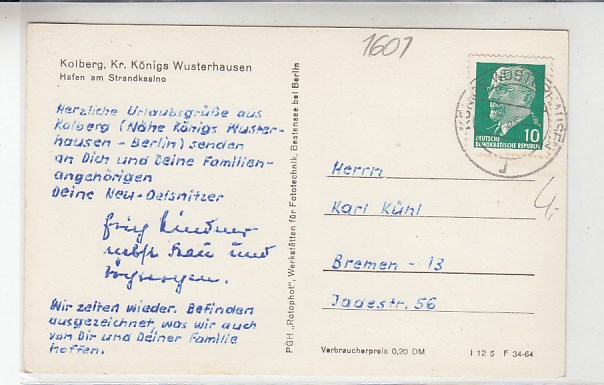 1601
Kolberg, Kr. Königs Wusterhausen
Hafen am Strandkasino
Herzliche Urlaubsgrüße aus
Kolberg (Nähe Königs Wuster-
hausen - Berlin) senden
an Dich und Deine Familien-
angehörigen
Deine Neu-Oelsnitzer
nebst Frau und
Wir zelten wieder. Befinden
ausgezeichnet, was wir auch
von Dir und Deiner Familie
hoffen.
PGH „Rotophot", Werkstätten für Fototechnik, Bestensee bei Berlin
10
DEUTSCHE
DEMOKRATISCHE REPUBLIK
4,-
Herrn
Karl Kühl
Bremen - 13
Jadestr. 56
Verbraucherpreis 0,20 DM
I 12 5 F 34-64